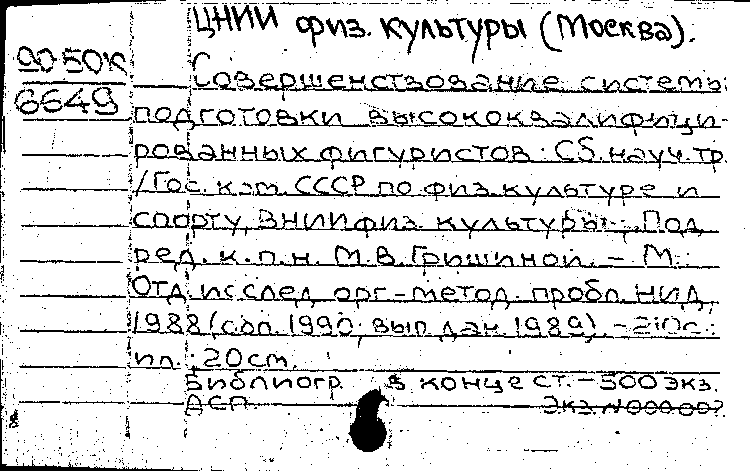 ЦНИИ физ. культуры (Москва).
90 50К
6649
Совершенствование системы
подготовки высококвалифици-
рованных фигуристов: Сб. науч. тр.
/Гос. ком. СССР по физ. культуре и
спорту, ВНИИ физ. культуры; Под
ред. к.п.н. М.В. Гришиной. - М.:
Отд. исслед. орг.-метод. пробл. НИД,
1988 (соп. 1990; вып. дан. 1989). - 210с.:
ил.; 20см.
Библиогр. в конце ст. - 500 экз.
ДСП
Экз. N000007